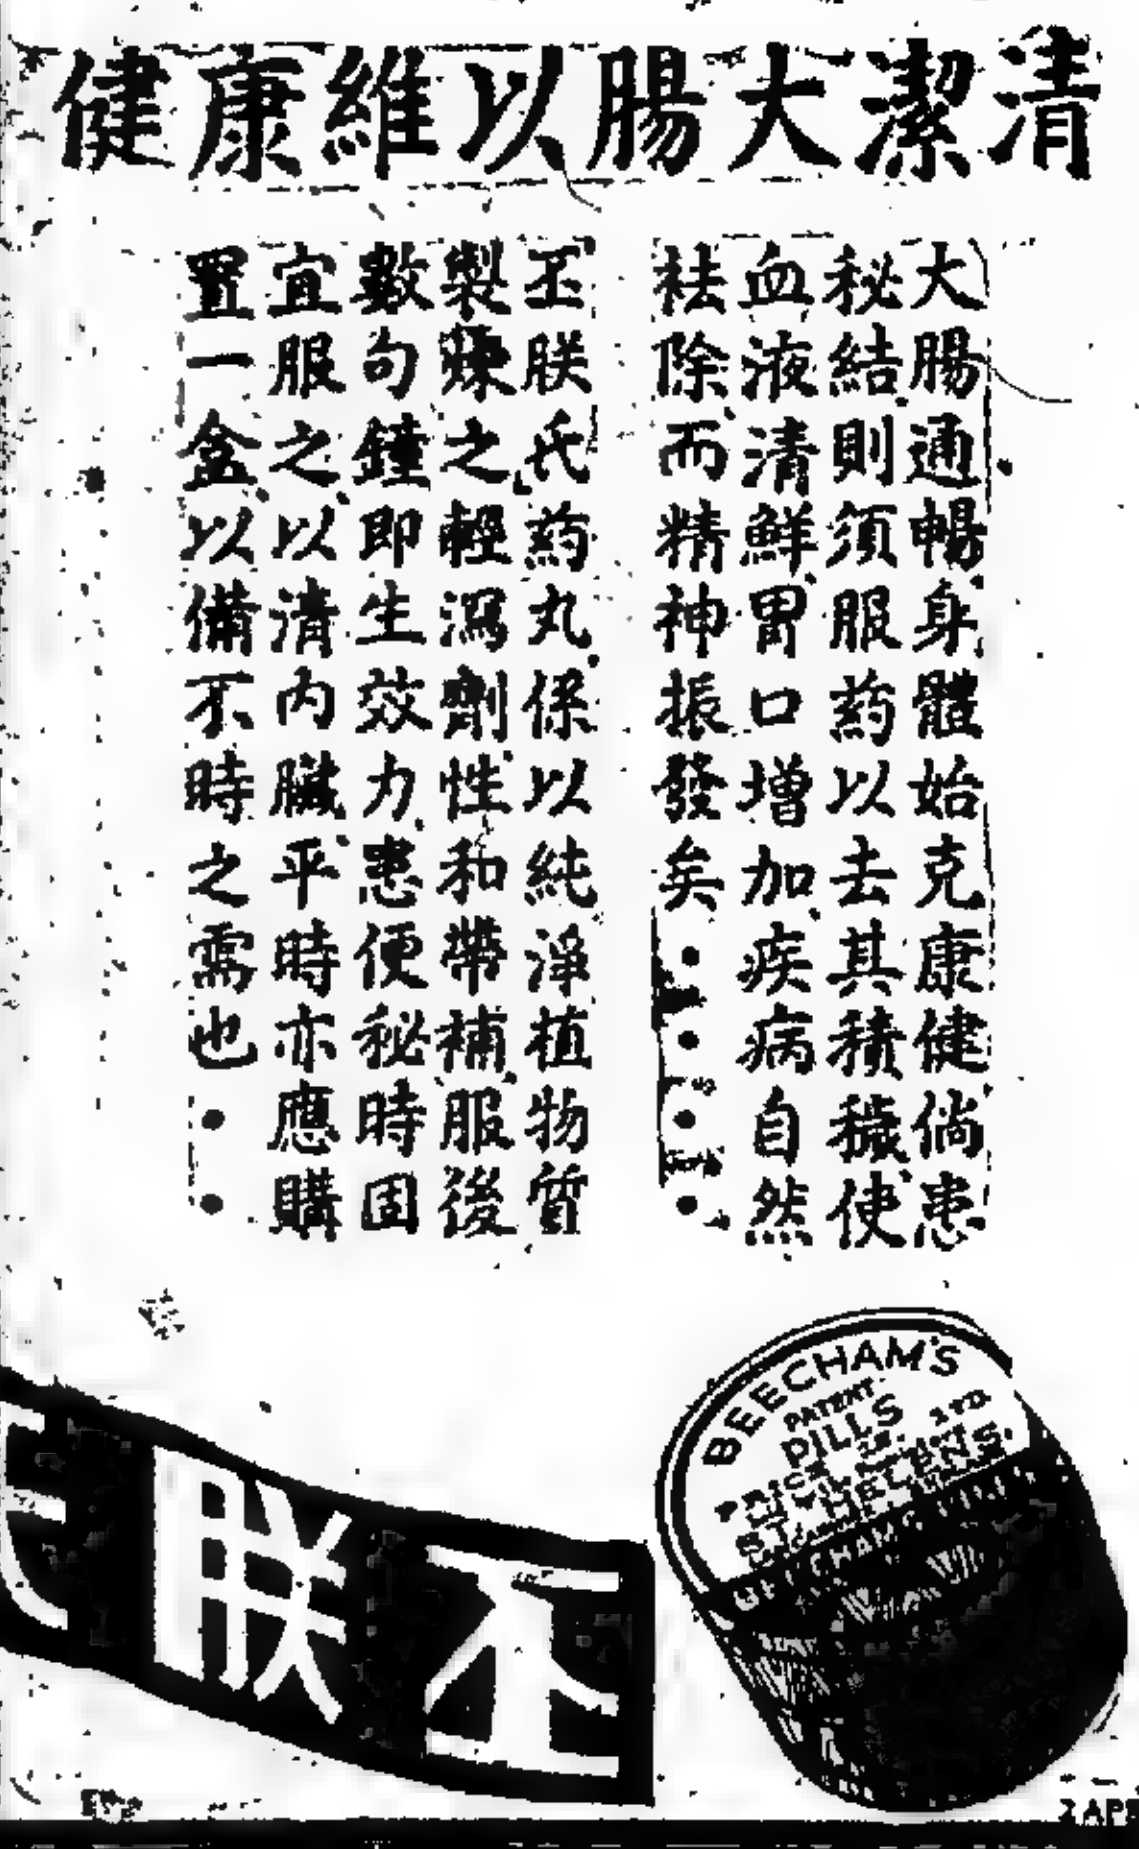 清潔大腸以維康健
大腸通暢身體始克康健倘患
秘結則須服药以去其積穢使
血液清鮮胃口增加疾病自然
祛除而精神振發矣・・・・
丕朕氏药丸係以純淨植物質
製煉之輕瀉劑性和帶補服後
數句鐘即生效力患便秘時固
宜服之以清内臟平時亦應購
置一盒以備不時之需也・・
BEECHAM'S
PATENT
PILLS
ST. HELENS.
BEECHAM'S PILLS
丕朕氏
2 APR